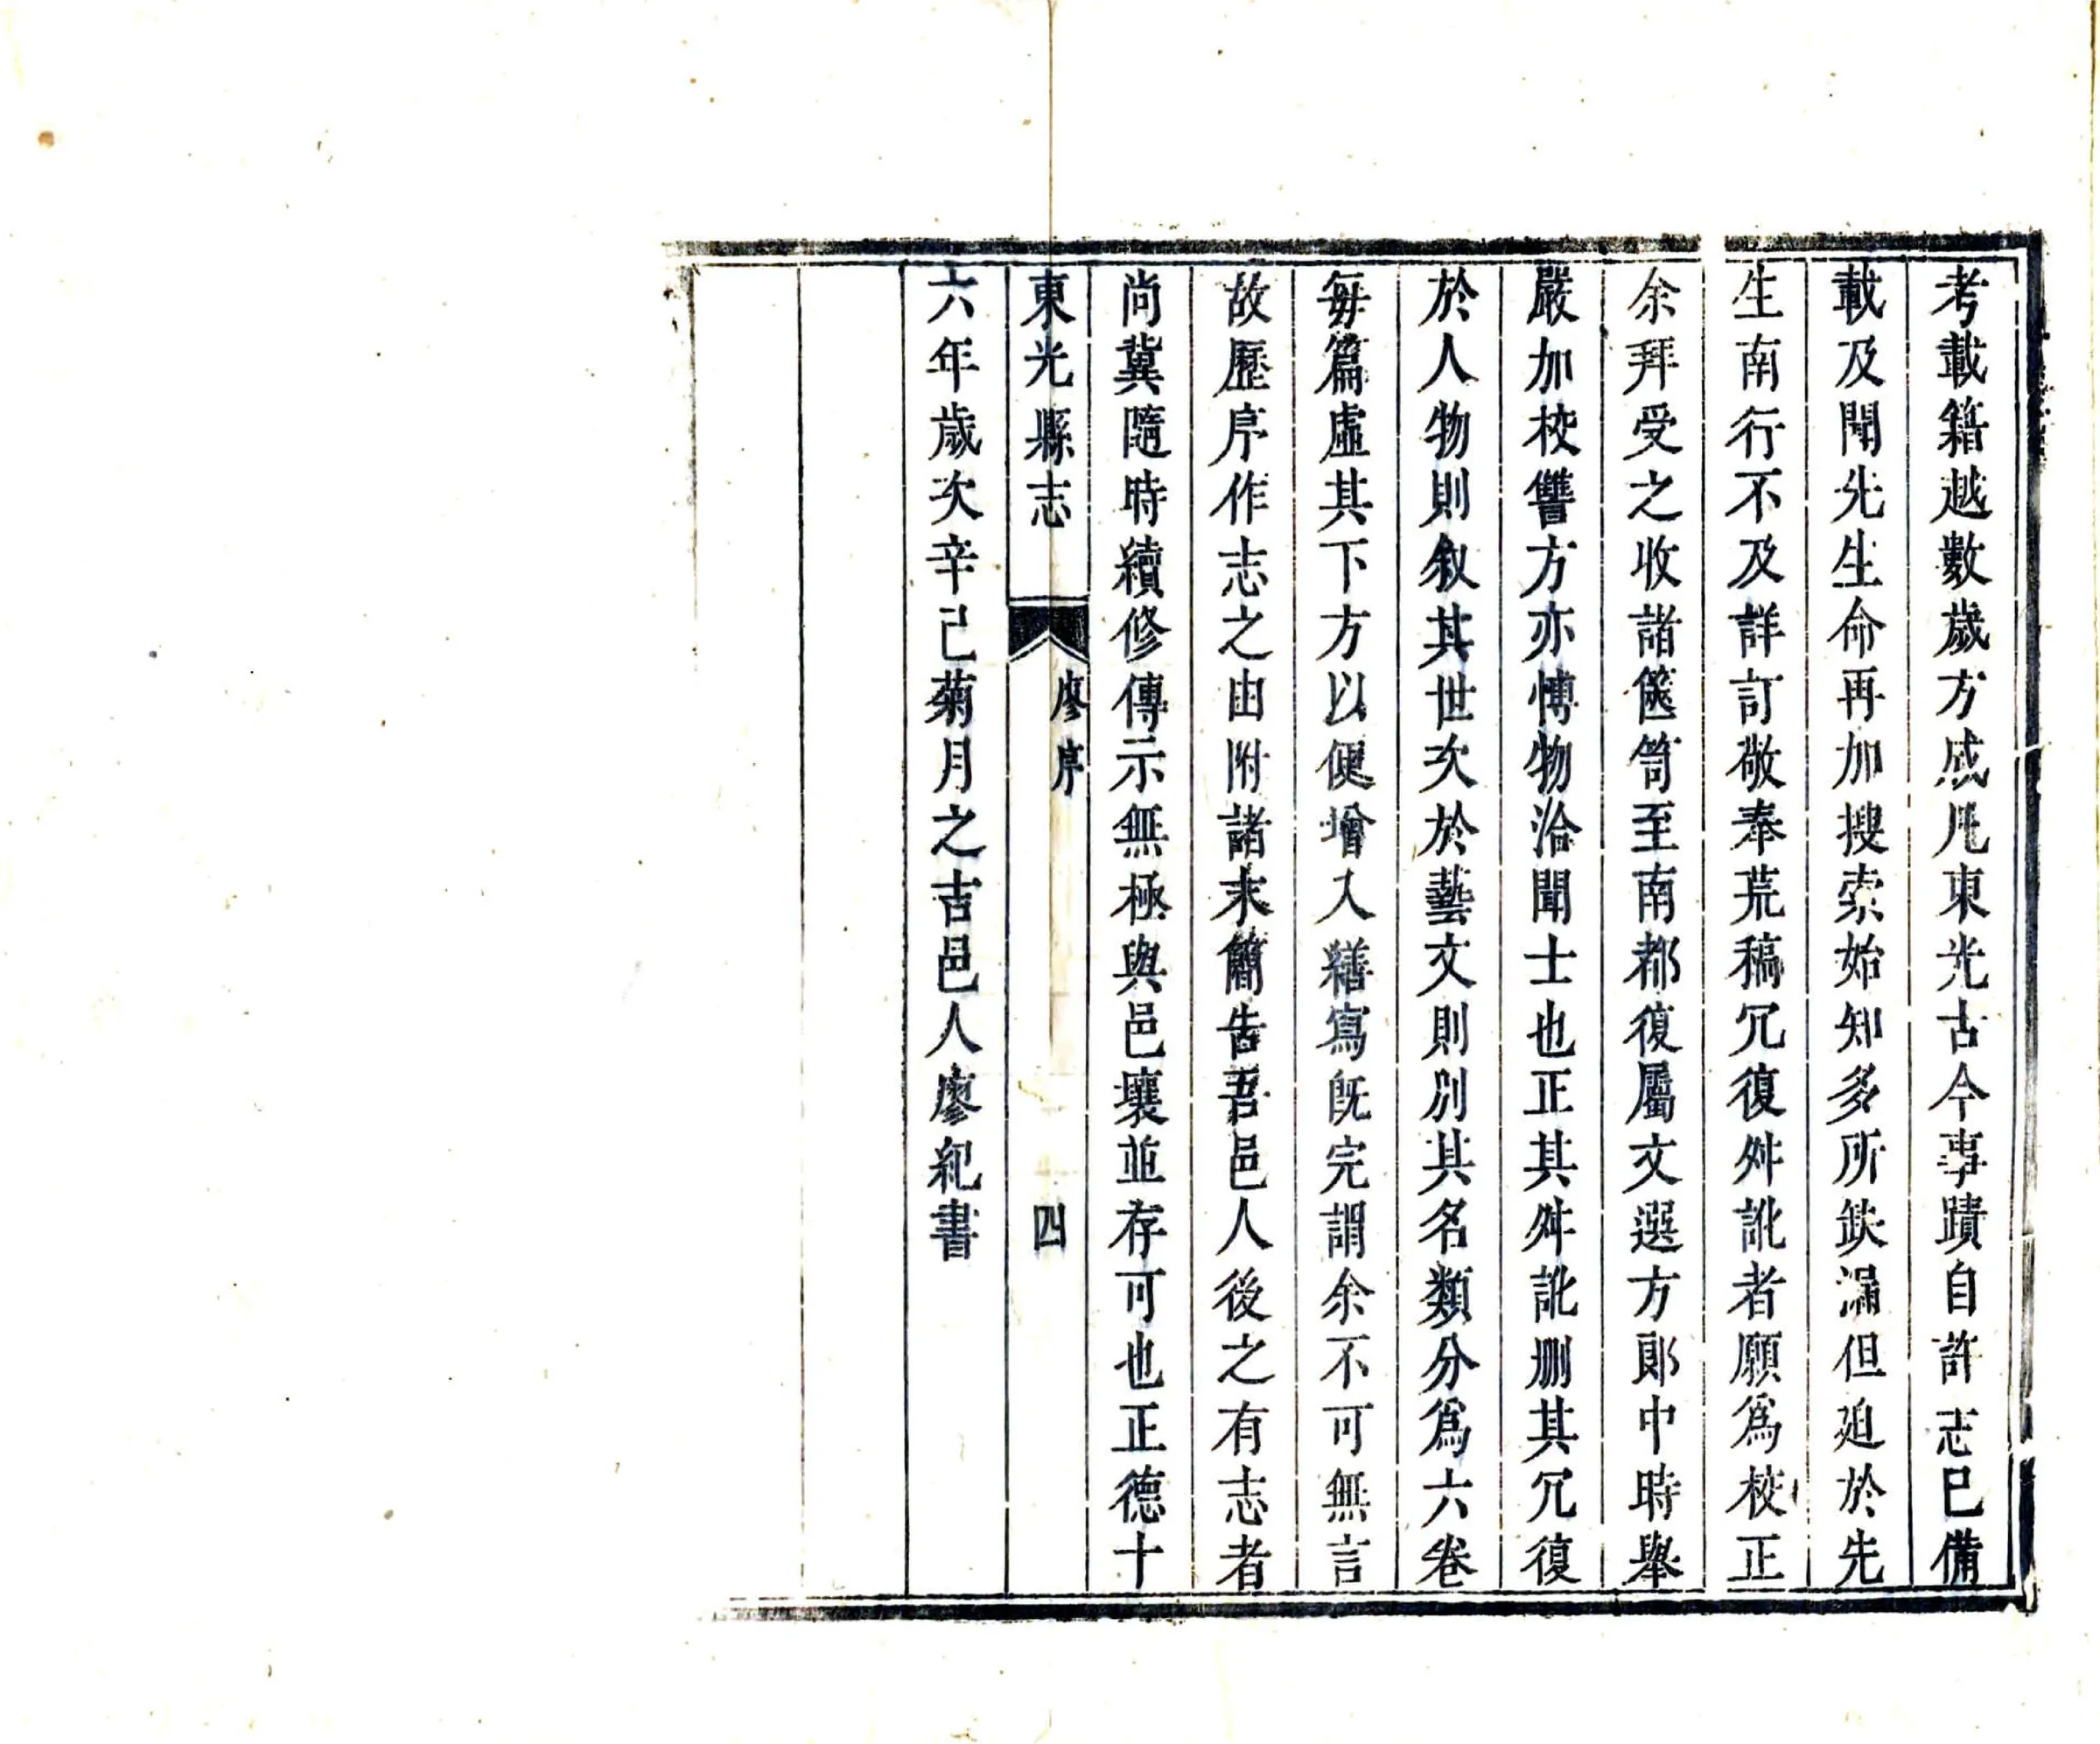 考載籍越數歲方成凡東光古今事蹟自許志已備
載及聞先生命再加搜索始知多所缺漏但廹於先
生南行不及詳訂敬奉荒稿冗復舛訛者願爲校正
余拜受之收諸篋笥至南都復屬文選方郎中時舉
嚴加校讐方亦愽物洽聞士也正其舛訛删其冗復
於人物則叙其世次於藝文則别其名類分爲六卷
每篇虛其下方以便增入繕寫旣完謂余不可無言
故歷序作志之由附諸末簡告吾邑人後之有志者
尚冀隨時續修傳示無極與邑壤並存可也正德十
東光縣志
廖序
四
六年歲次辛已菊月之吉邑人廖紀書